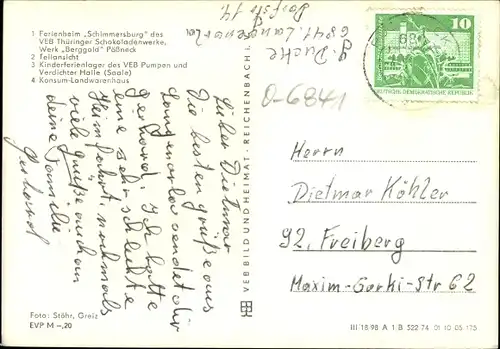 1 Ferienheim „Schimmersburg" des
VEB Thüringer Schokoladenwerke,
Werk „Berggold" Pößneck
2 Teilansicht
3 Kinderferienlager des VEB Pumpen und
Verdichter Halle (Saale)
4 Konsum-Landwarenhaus
6841 Langenorla
Dorfstr. 14
O-6841
10
DEUTSCHE DEMOKRATISCHE REPUBLIK
Lieber Dietmar
Die besten grüße aus
Langenorla sendet dir
Gerhard. Ich hatte
eine sehr schlechte
Heimfahrt. nochmals
viele grüße auch an
deine Familie
Gerhard
VEB BILD UND HEIMAT · REICHENBACH i.
Herrn
Dietmar Köhler
92, Freiberg
Maxim-Gorki-Str 62
Foto: Stöhr, Greiz
EVP M –,20
III 18 98 A 1 B 522 74 01 10 05 175